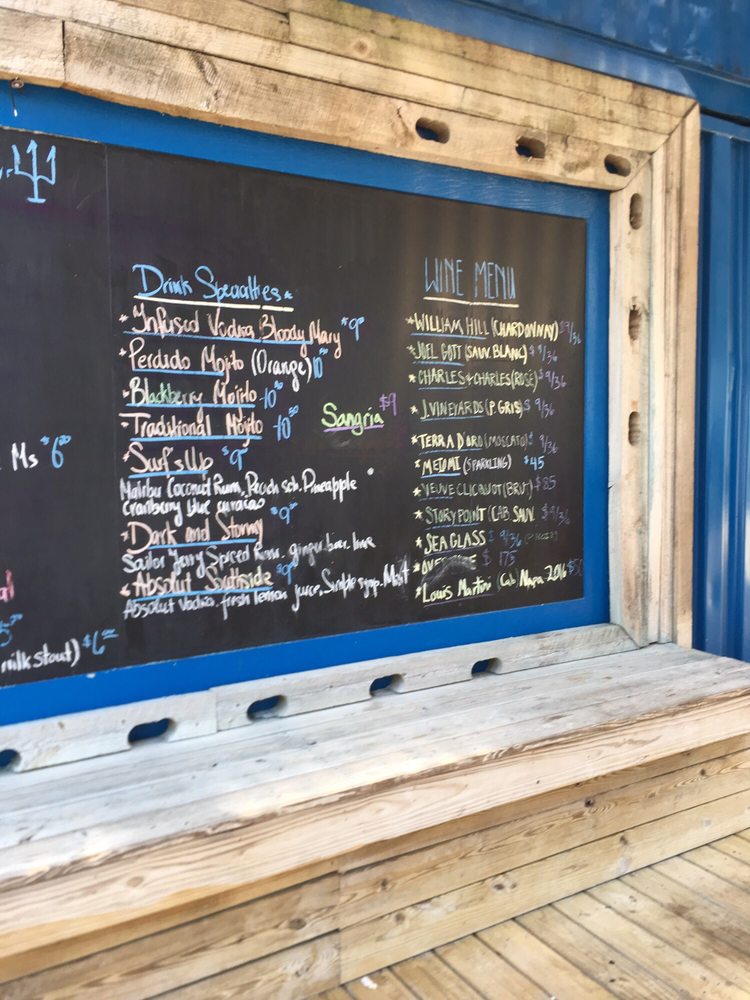 Ms $6
milk stout) $6
Drink Specialties
*Infused Vodka Bloody Mary $9
*Perdido Mojito (Orange) 10
*Blackberry Mojito - 10
*Traditional Mojito - 10
*Surf's Up $9
Malibu Coconut Rum, Peach sch. Pineapple
Cranberry blue curacao
*Dark and Stormy $9
Sailor Jerry Spiced Rum, ginger beer, lime
*Absolut Southside $9
Absolut Vodka, fresh lemon juice, Simple syrup, Mint
Sangria $9
WINE MENU
*WILLIAM HILL (CHARDONNAY) $9/36
*JOEL GOTT (SAUV BLANC) $9/36
*CHARLES & CHARLES (ROSÉ) $9/36
*J. VINEYARDS (P. GRIS) $9/36
*TERRA D'ORO (MOSCATO) $9/36
*MEIOMI (SPARKLING) $45
*VEUVE CLICQUOT (BRUT) $85
*STORYPOINT (CAB SAUV. $9/36
*SEA GLASS $9/36
$175
*Louis Martini (Cab) Napa 2016